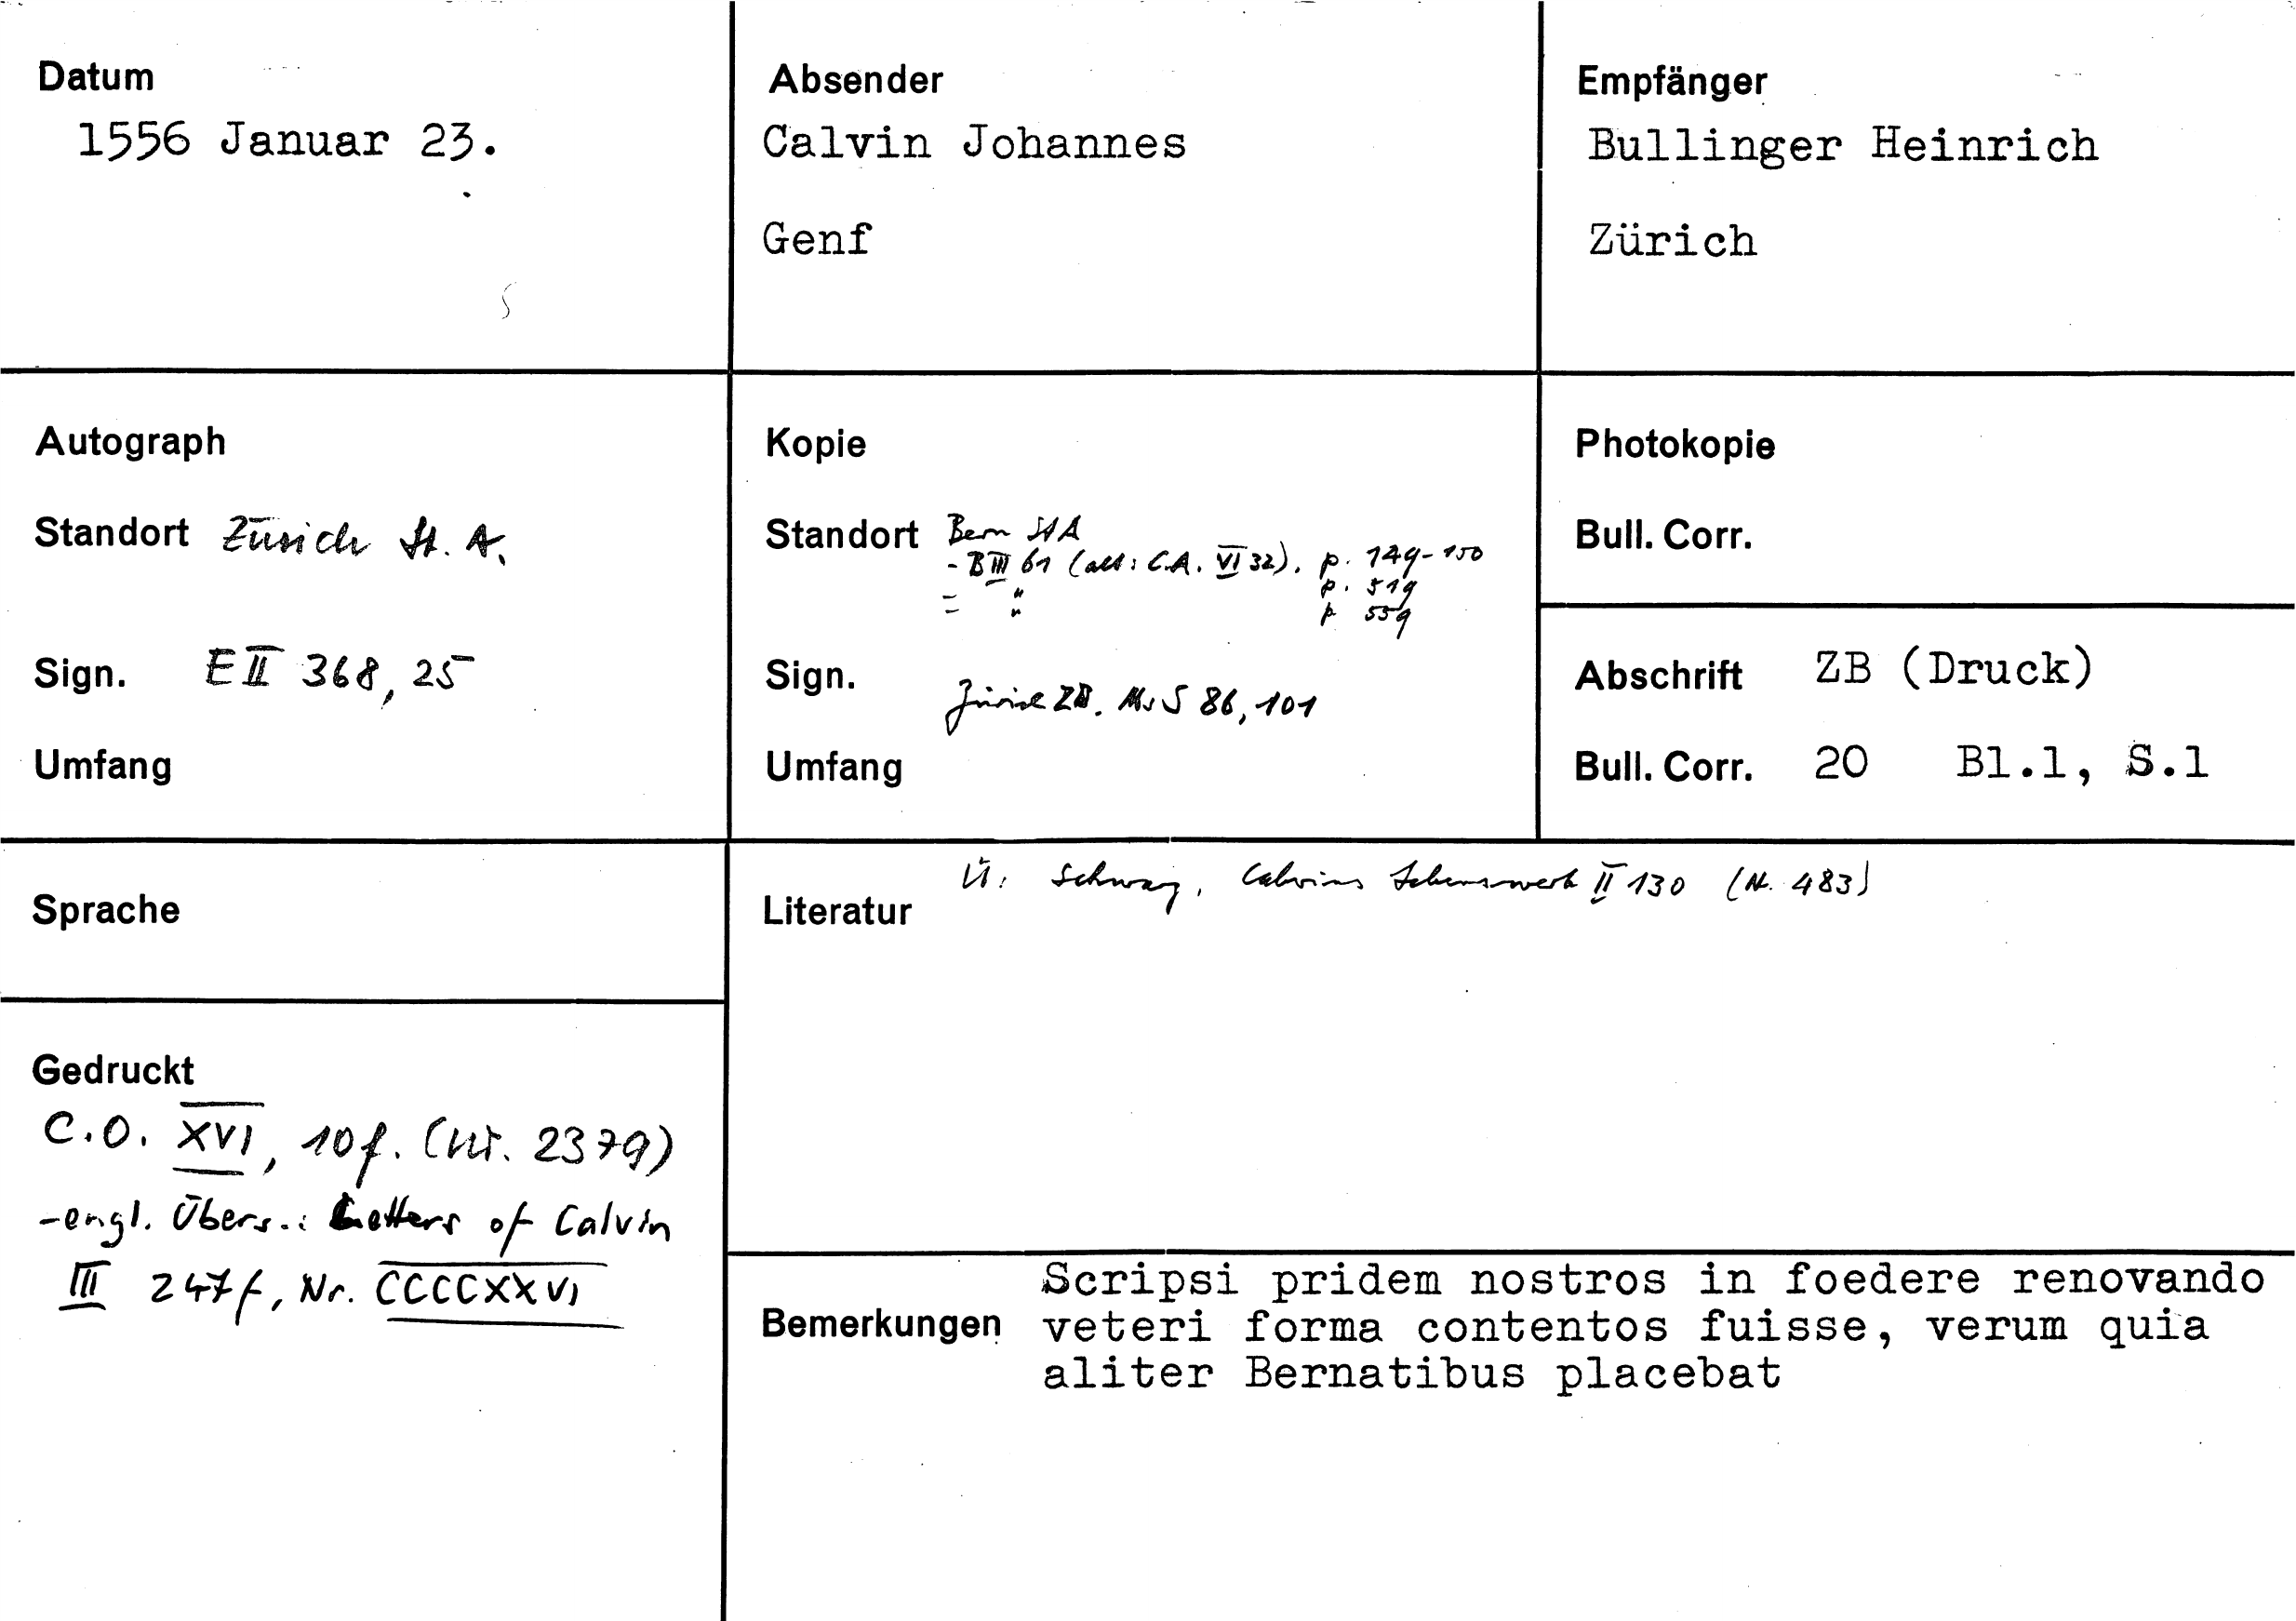 Datum
1556 Januar 23.
Absender
Calvin Johannes
Genf
Empfänger
Bullinger Heinrich
Zürich
Autograph
Standort Zürich St. A.
Sign. E II 368, 25
Umfang
Kopie
Standort Bern StA
- B III 61 (alt: C.A. VI 32), p. 149-150
- " p. 519
- " p 559
Sign.
Zürich ZB. Ms S 86, 101
Umfang
Photokopie
Bull. Corr.
Abschrift ZB (Druck)
Bull. Corr. 20 Bl.1, S.1
Sprache
Gedruckt
C.O. XVI, 10f. (Nr. 2379)
-engl. Übers.: Letters of Calvin
III 247f, Nr. CCCCXXVI
Ü: Schwarz, Calvins Lebenswerk II 130 (Nr. 483)
Literatur
Bemerkungen
Scripsi pridem nostros in foedere renovando
veteri forma contentos fuisse, verum quia
aliter Bernatibus placebat